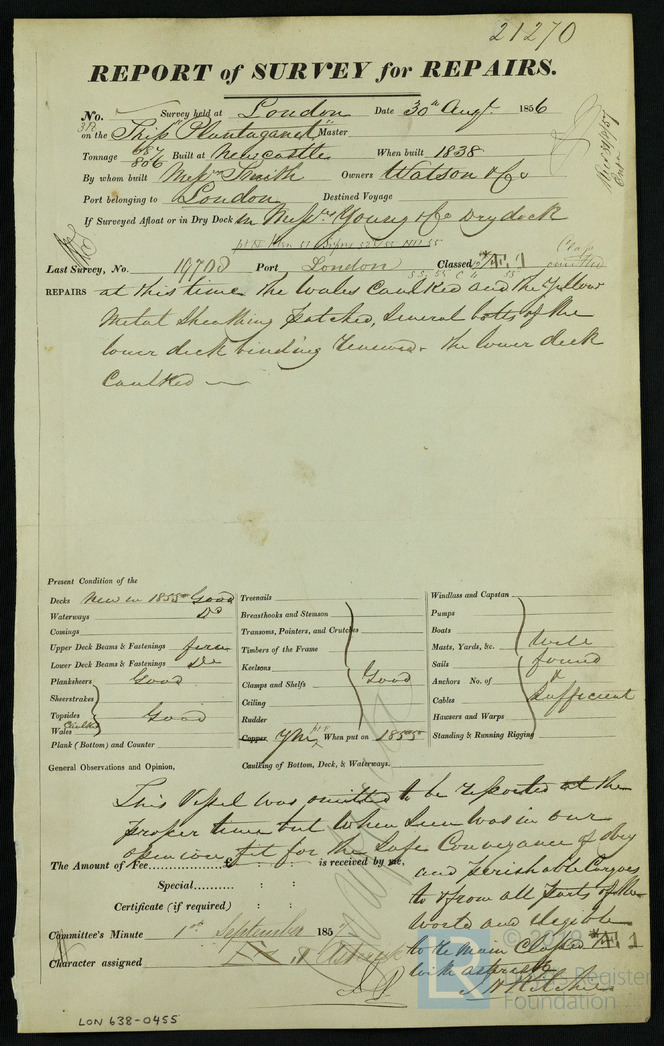 21270
REPORT of SURVEY for REPAIRS.
No. Survey held at London Date 30th Augt. 1856
on the Ship Plantaganet Master
Tonnage 687 806 Built at Newcastle When built 1838
By whom built Messrs Smith Owners Watson & Co
Port belonging to London Destined Voyage
If Surveyed Afloat or in Dry Dock in Messrs Young & Co Dry dock
Last Survey, No. 19708 Port London Classed Æ 1
REPAIRS at this time the Wales Caulked and the Yellow
Metal Sheathing Patched, Several bolts of the
lower deck binding renewed. The lower deck
Caulked
Present Condition of the
Decks New in 1855 Good
Waterways Do
Comings
Upper Deck Beams & Fastenings firm
Lower Deck Beams & Fastenings Do
Planksheers Good
Sheerstrakes
Topsides Good
Wales Caulked
Plank (Bottom) and Counter
General Observations and Opinion,
Treenails
Breasthooks and Stemson
Transoms, Pointers, and Crutches
Timbers of the Frame
Keelsons
Clamps and Shelfs Good
Ceiling
Rudder
Copper YM When put on 1855
Caulking of Bottom, Deck, & Waterways.
Windlass and Capstan
Pumps
Boats
Masts, Yards, &c. Well
Sails found
Anchors No. of &
Cables Sufficient
Hawsers and Warps
Standing & Running Rigging
This Vessel was omitted to be reported at the
proper time but when seen was in our
opinion fit for the Safe Conveyance of dry
and perishable Cargoes
to & from all parts of the
World and eligible
to the main Classed Æ 1
with asterisk
The Amount of Fee £ : : is received by me,
Special : :
Certificate (if required) : :
Committee's Minute September 185
Character assigned
© 2019
LR
Lloyd's Register
Foundation
LON 638-0455